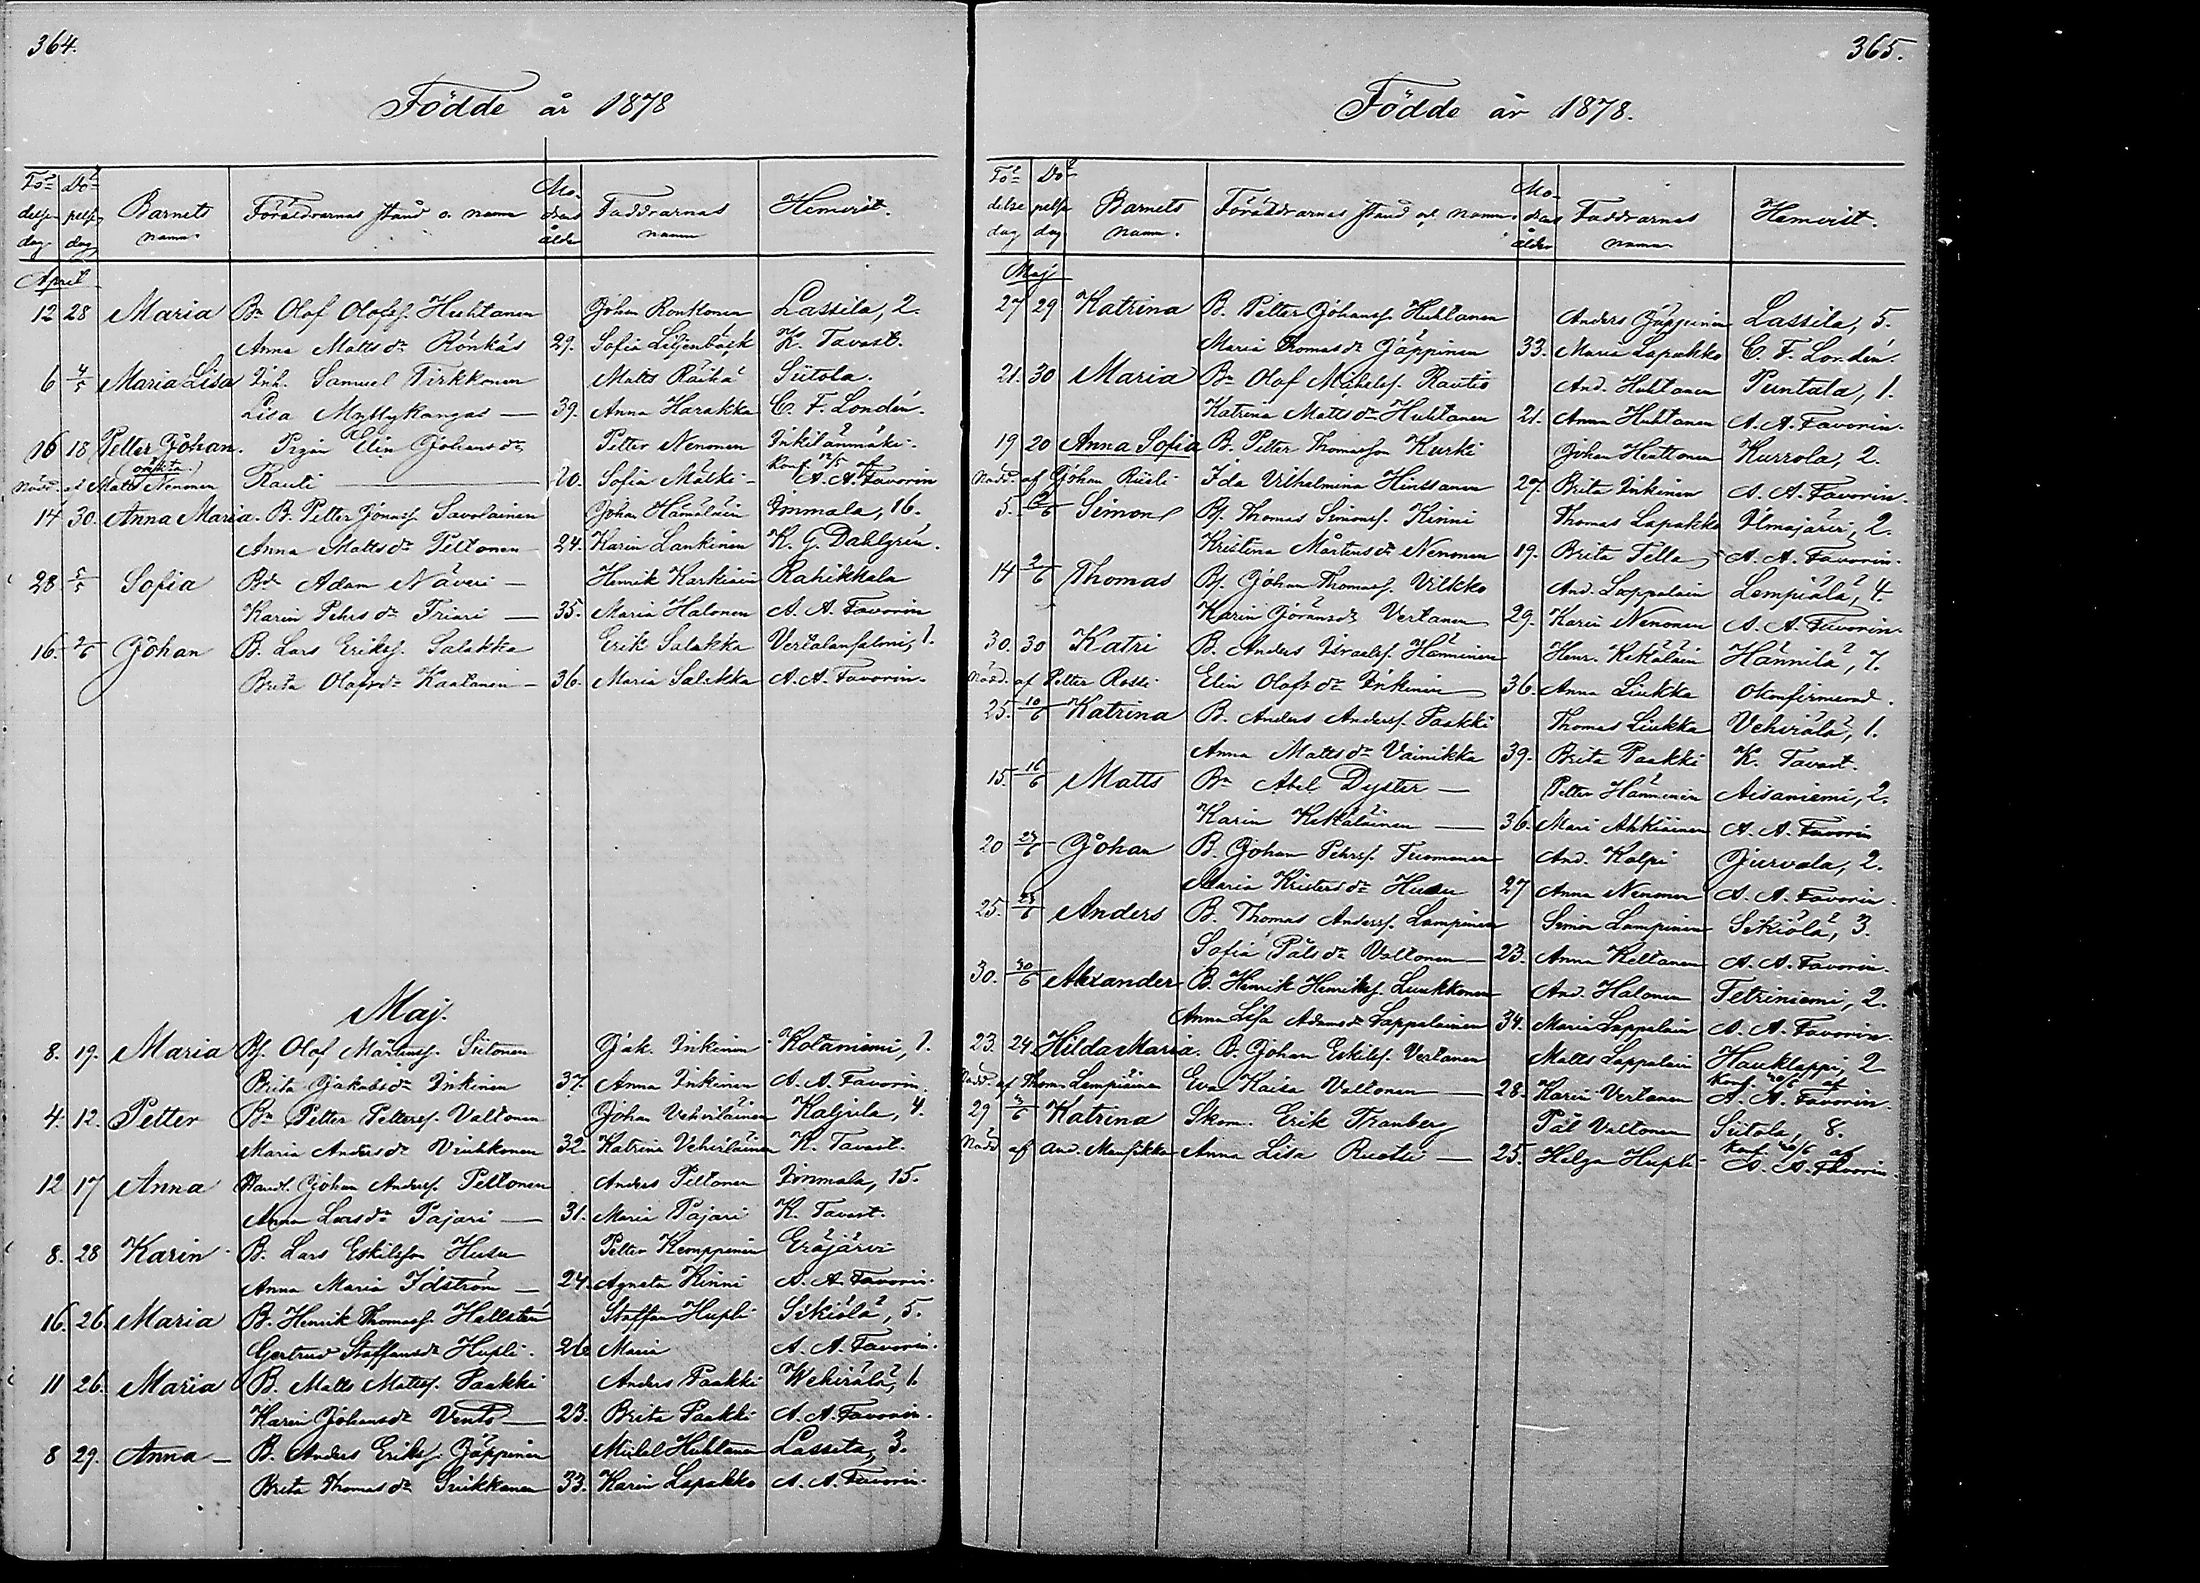 364.
Födde år 1878
Fö- Dö- Mo-
delse pelse Barnets Föräldrarnas stånd o. namn drens Faddrarnas Hemvist.
dag dag namn ålder namn
April
12 28 Maria Bn Olof Olofsf. Huhtanen Johan Ronkonen Lassila, 2.
Anna Mattsdr Rönkäs 29. Sofia Liljenbäck K. Tavast.
6 4/5 Maria Lisa Inh. Samuel Tirkkonen Matts Räihä Siitola.
Lisa Myllykangas — 39. Anna Harakka C. F. Londén.
16 18 Petter Johan. Pigan Elin Johansdr Petter Nenonen Inkilänmäki.
(oäkta) Konf. 12/5 af
Nödd. af Matts Nenonen Rauti — 20. Sofia Mälki A. A. Favorin
14 30. Anna Maria. B. Petter Jönasf. Savolainen Johan Hämäläin Immala, 16.
Anna Mattsdr Peltonen 24. Karin Lankinen K. G. Dahlgrén.
28 5/5 Sofia Bdr Adam Näveri — Henrik Karkiain Rahikkala
Karin Pehrsdr Friari — 35. Maria Halonen A. A. Favorin
16. 2/6 Johan B. Lars Eriksf. Salakka Erik Salakka Vertalansaloni, 1.
Brita Olofsdr Kaatanen — 36. Maria Salakka A. A. Favorin.
Maj.
8. 19. Maria Bf. Olof Mårtensf. Siitonen Jak. Inkinen Kotaniemi, 1.
Brita Jakobsdr Inkinen 37. Anna Inkinen A. A. Favorin.
4. 12. Petter Bn Petter Pettersf. Valtonen Johan Vehviläinen Kaljula, 4.
Maria Andersdr Viuhkonen 32. Katrina Vehviläinen K. Tavast.
12 17 Anna Johan Andersf. Peltonen Anders Peltonen Immala, 15.
Anna Larsdr Pajari — 31. Maria Pajari K. Tavast.
8. 28 Karin B. Lars Eskilsson Husu Petter Kemppinen Eräjärvi
Anna Maria Idström — 24. Agneta Kinni A. A. Favorin.
16. 26. Maria B. Henrik Thomasf. Hallstén Staffan Hupli Sikiölä, 5.
Gertrud Staffansdr Hupli. 26. Maria A. A. Favorin.
11 26. Maria B. Matts Mattsf. Paakki Anders Paakki Wehviälä, 1.
Karin Johansdr Vento — 23. Brita Paakki A. A. Favorin.
8 29. Anna — B. Anders Eriksf. Jäppinen Mikel Huhtanen Lassila, 3.
Brita Thomasdr Sivikkanen 33. Karin Lapakko A. A. Favorin.
365.
Födde år 1878.
Fö- Dö- Mo-
delse pelse Barnets Föräldrarnas stånd och namn. drens Faddrarnas Hemvist.
dag dag namn. ålder namn
Maj
27 29 Katrina B. Petter Johansf. Huhtanen Anders Jäppinen Lassila, 5.
Maria Thomasdr Jäppinen 33. Maria Lapakko C. F. Londén.
21. 30 Maria Bn Olof Mickelsf. Rautio And. Huhtanen Puntala, 1.
Katrina Mattsdr Huhtanen 21. Anna Huhtanen A. A. Favorin.
19 20 Anna Sofia B. Petter Thomasson Kurki Johan Henttonen Kurrola, 2.
Nödd. af Johan Rieli Ida Vilhelmina Hinssanen 27. Brita Inkinen A. A. Favorin.
5. Simon Bf. Thomas Simonsf. Kinni Thomas Lapakko Ilmajärvi, 2.
Kristina Mårtensdr Nenonen 19. Brita Tella A. A. Favorin.
14 2/6 Thomas Bf. Johan Thomasf. Vilkko And. Lappalain Lempiälä, 4.
Karin Göransdr Vertanen 29. Karin Nenonen A. A. Favorin.
30. 30 Katri B. Anders Israelsf. Hänninen Henr. Kekäläin Hännilä, 7.
Nödd. af Petter Rossi Elin Olofsdr Inkinen 36. Anna Liukka Okonfirmerad.
25. 10/6 Katrina B. Anders Andersf. Paakki Thomas Liukka Vehviälä, 1.
Anna Mattsdr Vainikka 39. Brita Paakki K. Tavast.
15. 16/6 Matts Bn Abel Dyster — Petter Hänninen Aisaniemi, 2.
Karin Kekäläinen — 36. Mari Ahkiainen A. A. Favorin
20 23/6 Johan B. Johan Pehrsf. Tuomanen And. Kolpi Jurvala, 2.
Maria Kristersdr Husu 27 Anna Nenonen A. A. Favorin.
25. 23/6 Anders B. Thomas Andersf. Lampinen Simon Lampinen Sikiölä, 3.
Sofia Pålsdr Valtonen — 23. Anna Keltanen A. A. Favorin.
30. 30/6 Alexander B. Henrik Henriksf. Luukkonen And. Halonen Tetriniemi, 2.
Anna Lisa Adamsdr Lappalainen 34. Maria Lappalain A. A. Favorin.
23. 24 Hilda Maria. B. Johan Eskilsf. Vertanen Matts Lappalain Hauklappi, 2
Konf. 10/6 af
Nödd. af Thom. Lempiäinen Eva Kaisa Valtonen — 28. Karin Vertanen A. A. Favorin.
29 Katrina Skom. Erik Tranberg Pål Valtonen Siitola, 8.
Konf. 10/6 af
Nödd af And. Mansikka Anna Lisa Ruotsi — 25. Helga Hupli A. A. Favorin.